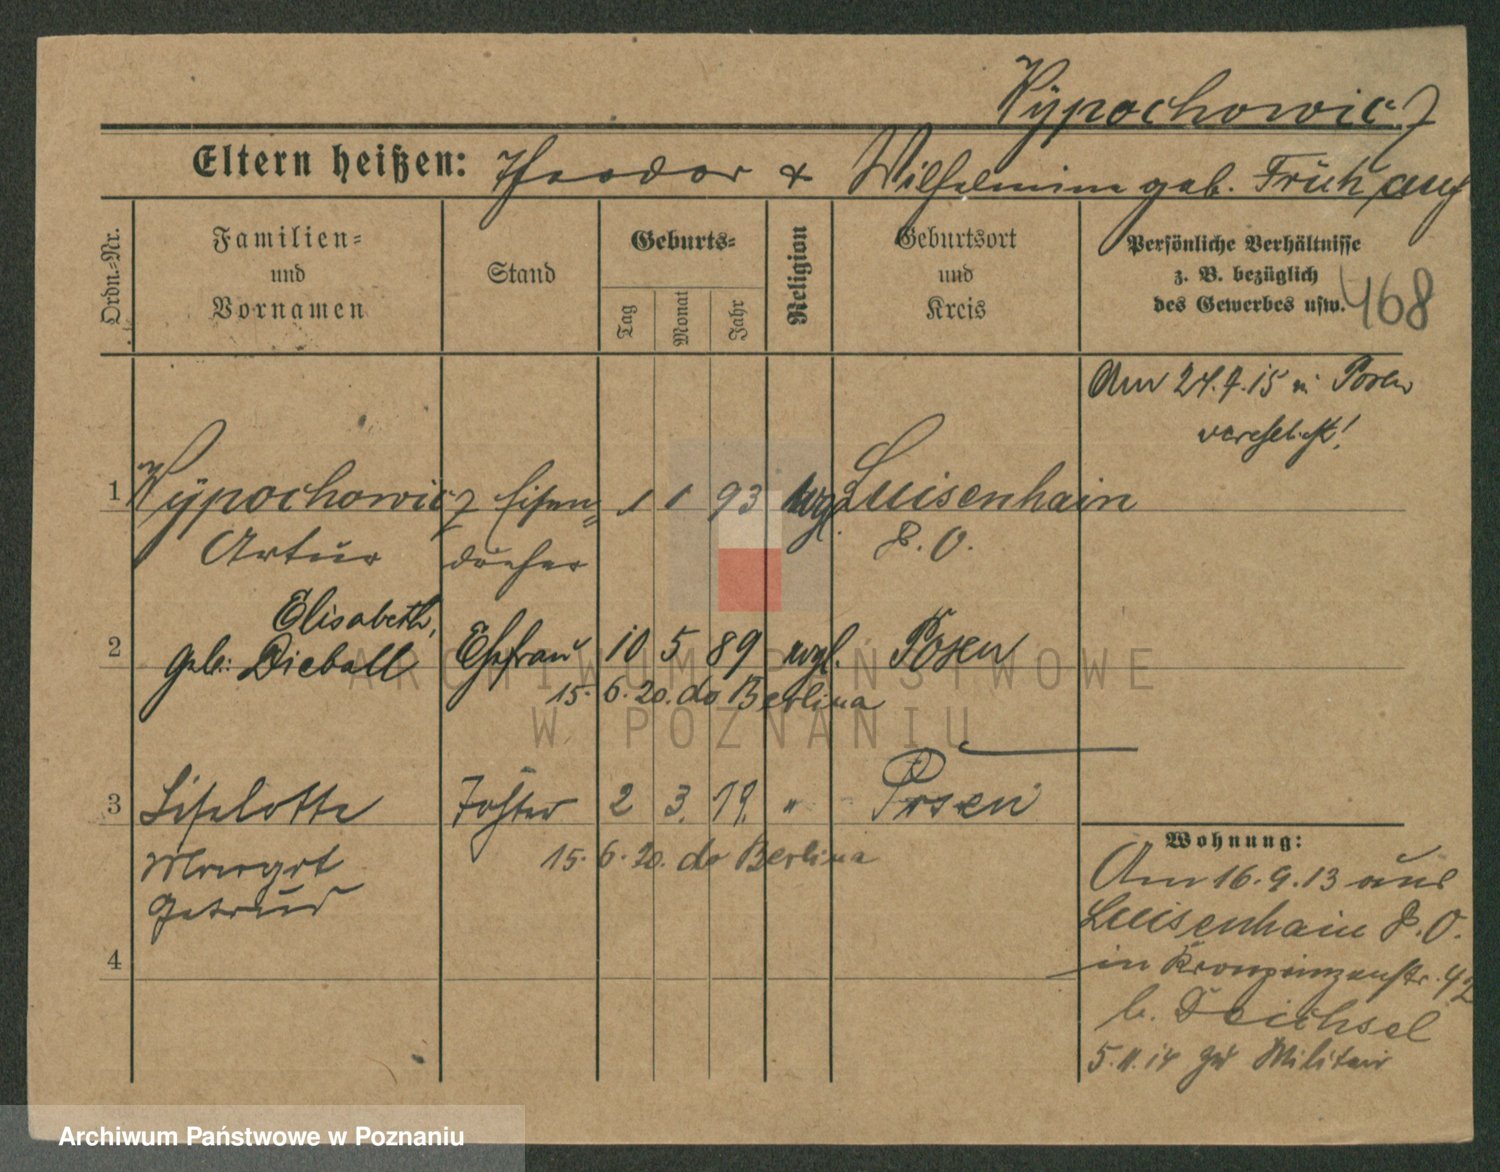 Wÿpochowicz
Eltern heißen: Theodor & Wilhelmine geb. Frühauf
Ordn.-Nr.
Familien-
und
Vornamen
Stand
Geburts-
Tag
Monat
Jahr
Religion
Geburtsort
und
Kreis
Persönliche Verhältnisse
z. B. bezüglich
des Gewerbes usw.
468
Am 24.9.15 in Posen
verehelicht!
1 Wÿpochowicz Eisen- 1 1 93 evgl. Luisenhain
Artur dreher P. O.
Elisabeth,
2 geb: Dieball Ehefrau 10 5 89 evgl. Posen
15. 6. 20. do Berlina
3 Liselotte Tochter 2 3. 19. " Posen
15. 6. 20. do Berlina
Margot
Gertrud
4
Wohnung:
Am 16.9.13 aus
Luisenhain P. O.
in Kronprinzenstr. 92
b. Deichsel
5.11.14 zu Militair
ARCHIWUM PAŃSTWOWE
W POZNANIU
Archiwum Państwowe w Poznaniu